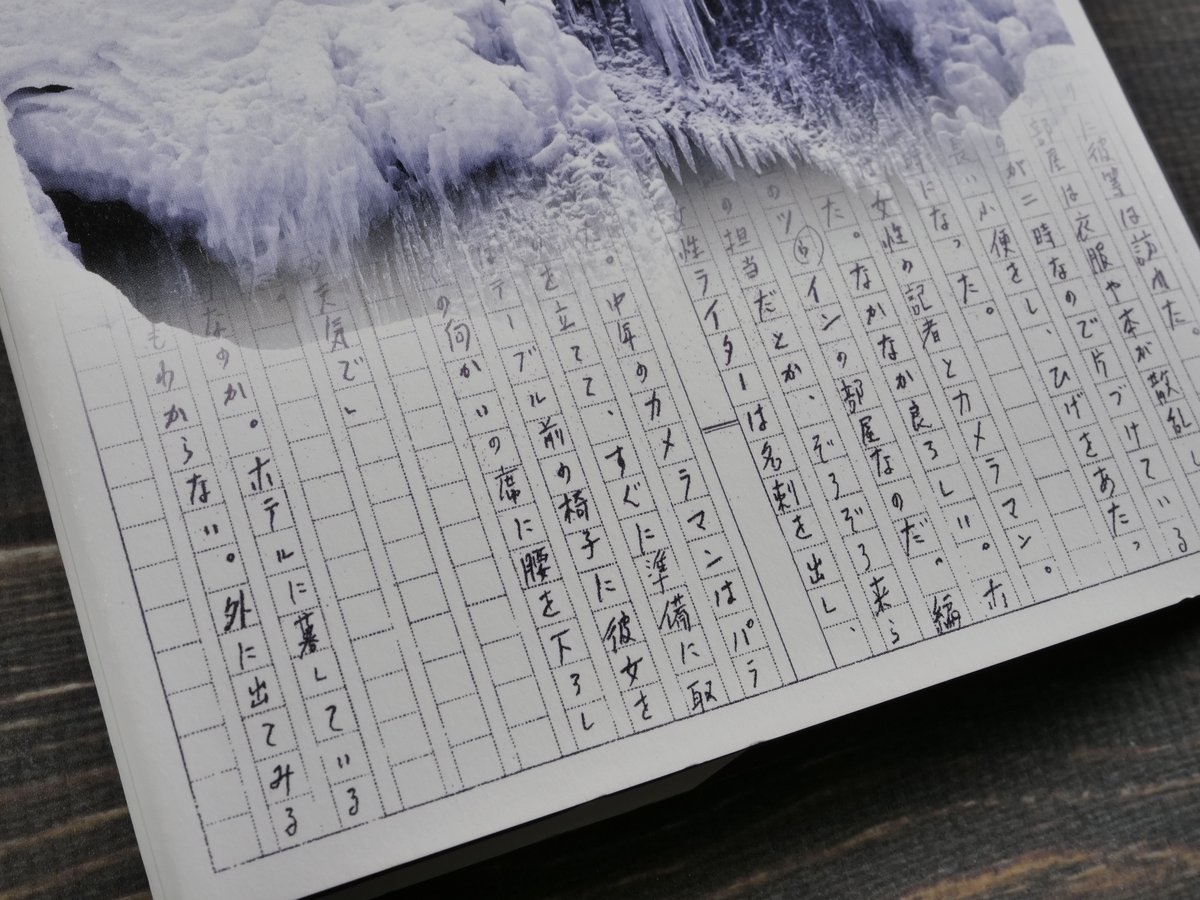 りに彼等は訪れた
部屋は衣服や本が散乱し
のが二時なので片づけている
長い小便をし、ひげをあたっ
時になった。
女性の記者とカメラマン。
た。なかなか良ろしい。ホ
のツインの部屋なのだ。編
⑥
の担当だとか、ぞろぞろ来ら
性ライターは名刺を出し、
。中年のカメラマンはパラ
を立てて、すぐに準備に取
テーブル前の椅子に彼女を
の向かいの席に腰を下ろし
天気でし
なのか。ホテルに暮している
もわからない。外に出てみる